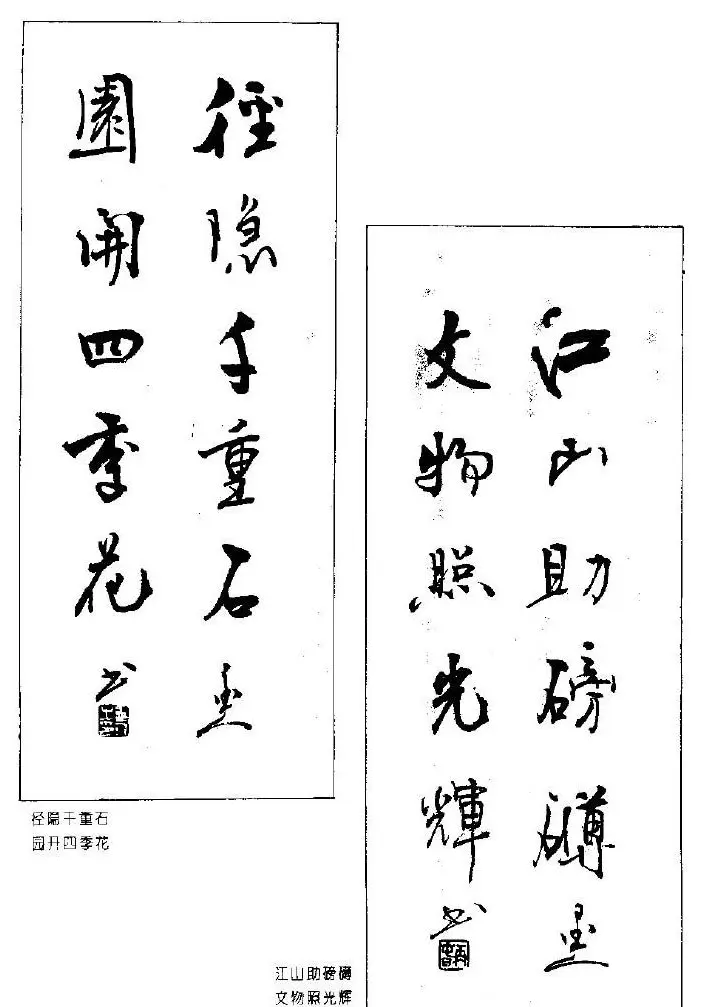 徑隱千重石
園開四季花
书
径隐千重石
园开四季花
江山助磅礴
文物照光輝
书
江山助磅礴
文物照光辉